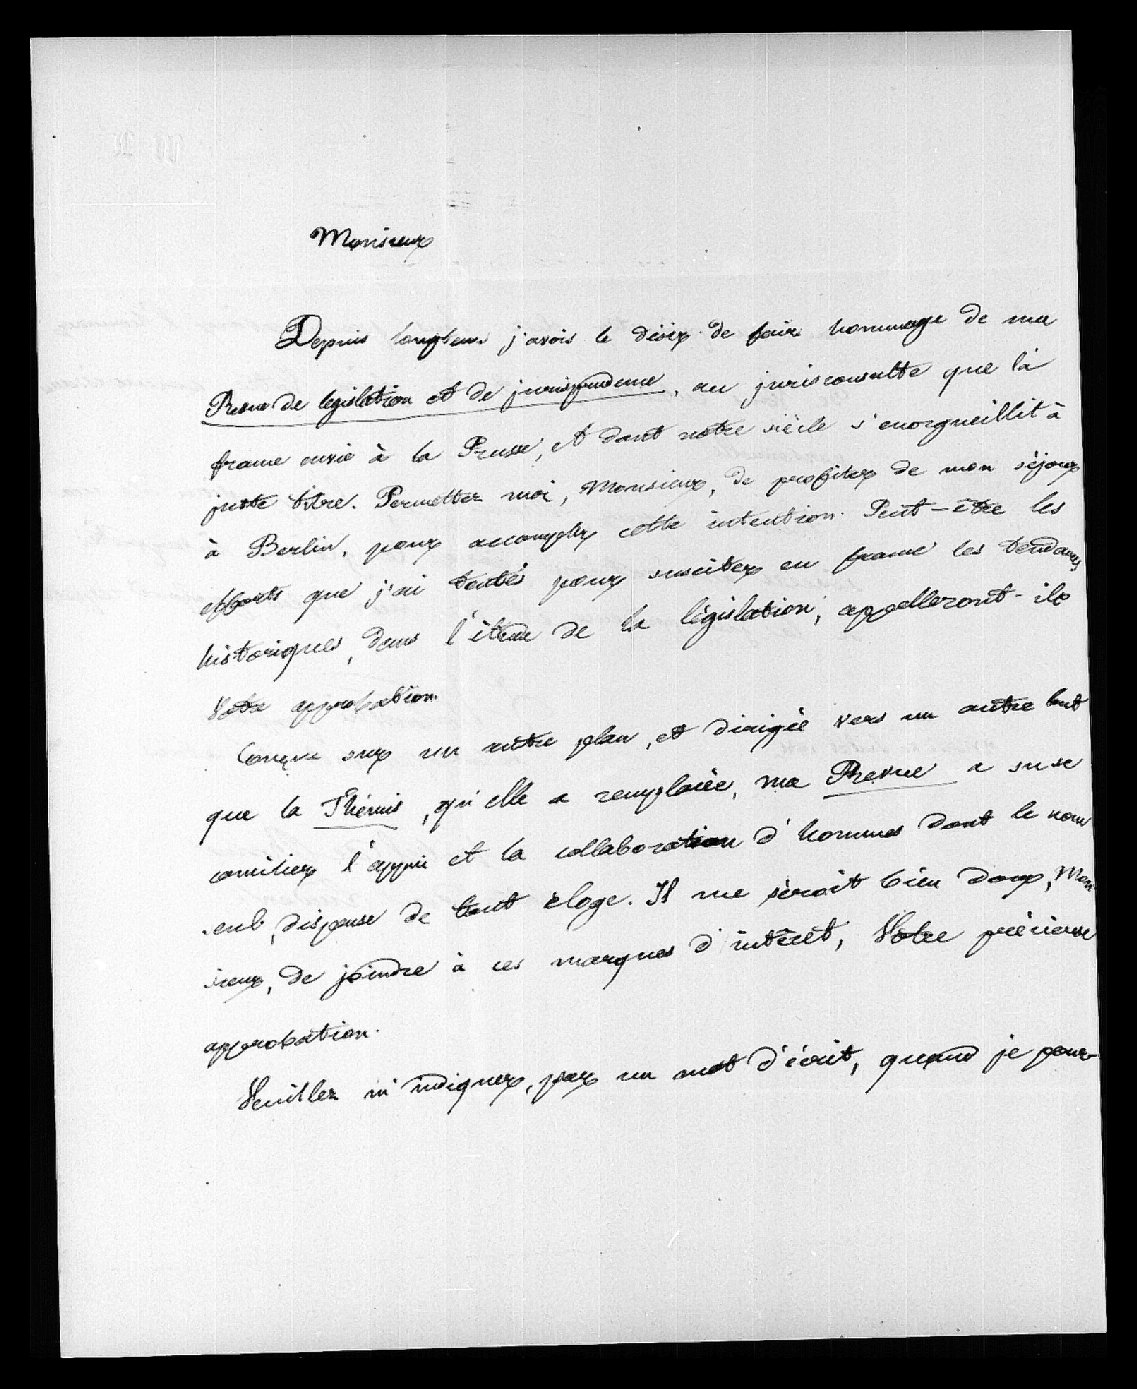 Monsieur
Depuis longtems j'avois le désir de faire hommage de ma
Revue de législation et de jurisprudence, au jurisconsulte que la
france envie à la Prusse, et dont notre siècle s'enorgueillit à
juste titre. Permettez moi, Monsieur, de profiter de mon séjour
à Berlin, pour accomplir cette intention. Peut-être les
efforts que j'ai tentés pour susciter en france les tendances
historiques, dans l'étude de la législation, appelleront-ils
Votre approbation.
Conçue sur un autre plan, et dirigée vers un autre but
que la Thémis, qu'elle a remplacée, ma Revue a su se
concilier l'appui et la collaboration d'hommes dont le nom
seul, dispense de tout éloge. Il me seroit bien doux, Mon
sieur, de joindre à ces marques d'intérêt, Votre précieuse
approbation.
Veuillez m'indiquer, par un mot d'écrit, quand je pour-